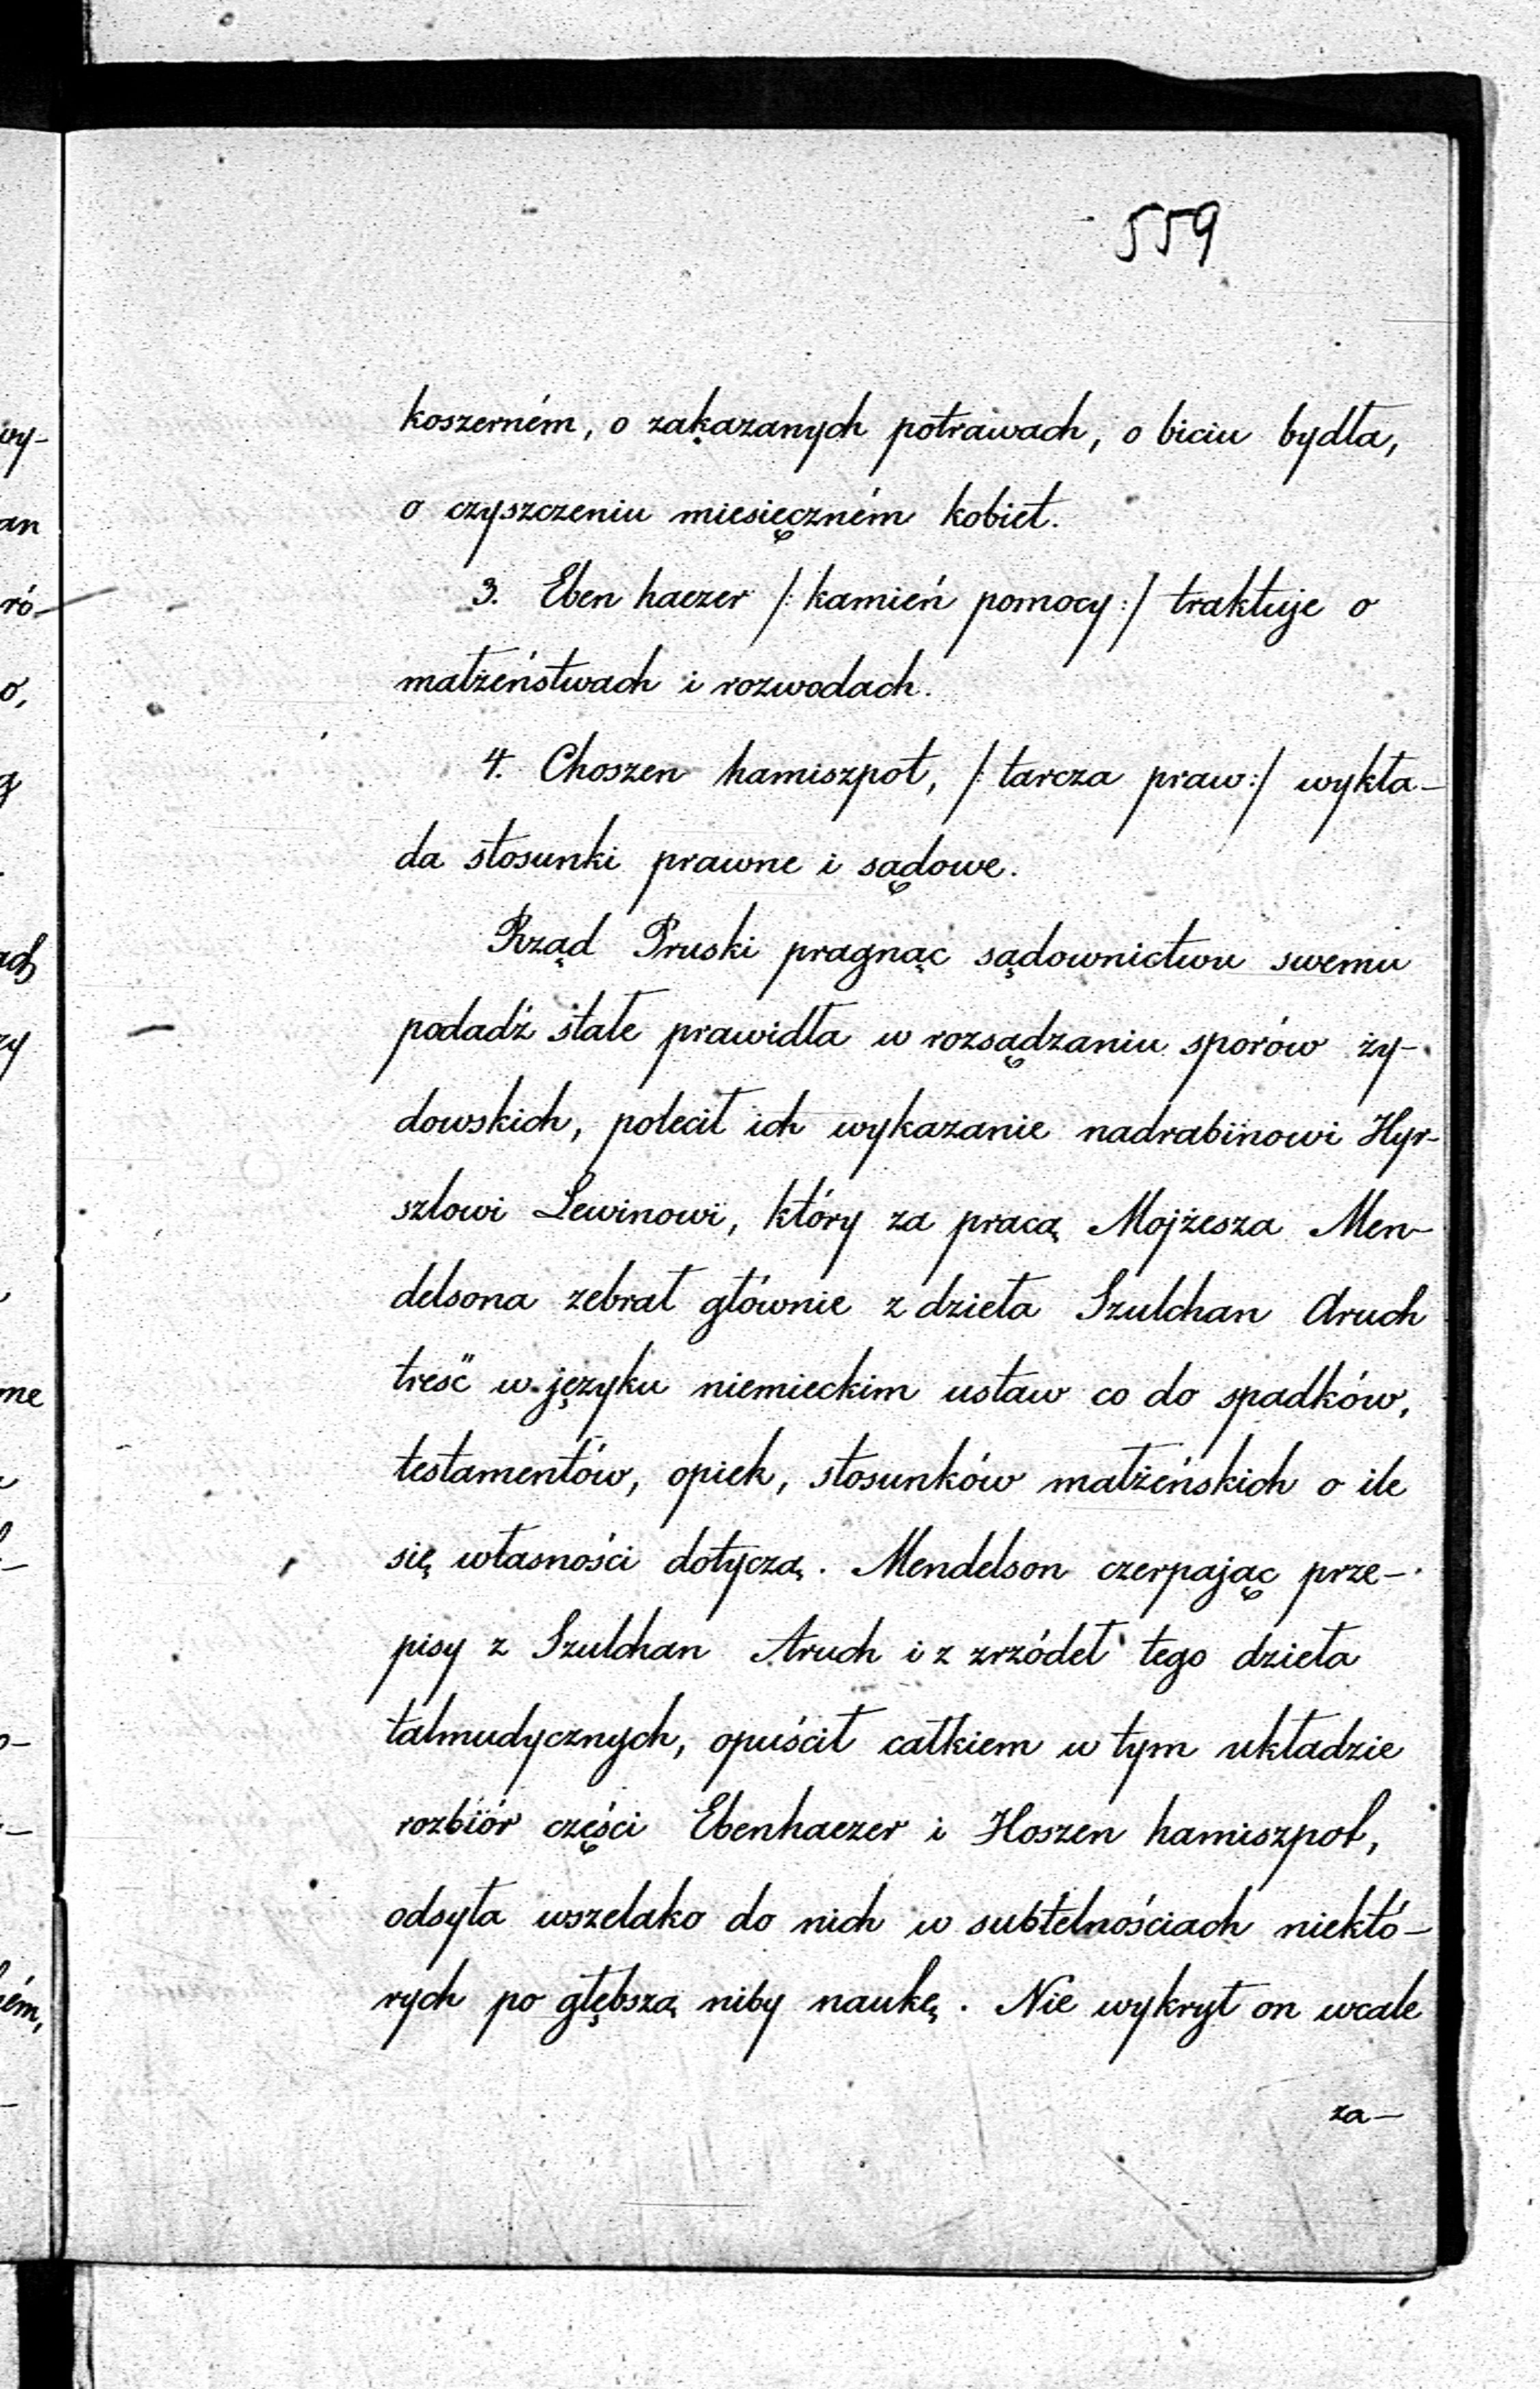 559
koszerném, o zakazanych potrawach, o biciu bydła,
o czyszczeniu miesięczném kobiet.
3. Eben haezer /: kamień pomocy :/ traktuje o
małżeństwach i rozwodach.
4. Choszen hamiszpot, /: tarcza praw :/ wykła-
da stosunki prawne i sądowe.
Rząd Pruski pragnąc sądownictwu swemu
podadź stałe prawidła w rozsądzaniu sporów ży-
dowskich, polecił ich wykazanie nadrabinowi Hyr-
szlowi Lewinowi, który za pracą Mojżesza Men-
delsona zebrał głównie z dzieła Szulchan Aruch
treść w języku niemieckim ustaw co do spadków,
testamentów, opiek, stosunków małżeńskich o ile
się własności dotyczą. Mendelson czerpając prze-
pisy z Szulchan Aruch i z zrzódeł tego dzieła
talmudycznych, opuścił całkiem w tym układzie
rozbiór części Ebenhaezer i Hoszen hamiszpot,
odsyła wszelako do nich w subtelnościach niektó-
rych po głębszą niby naukę. Nie wykrył on wcale
za-
wy-
an
ró-
o,
ach
zy
me
ém,